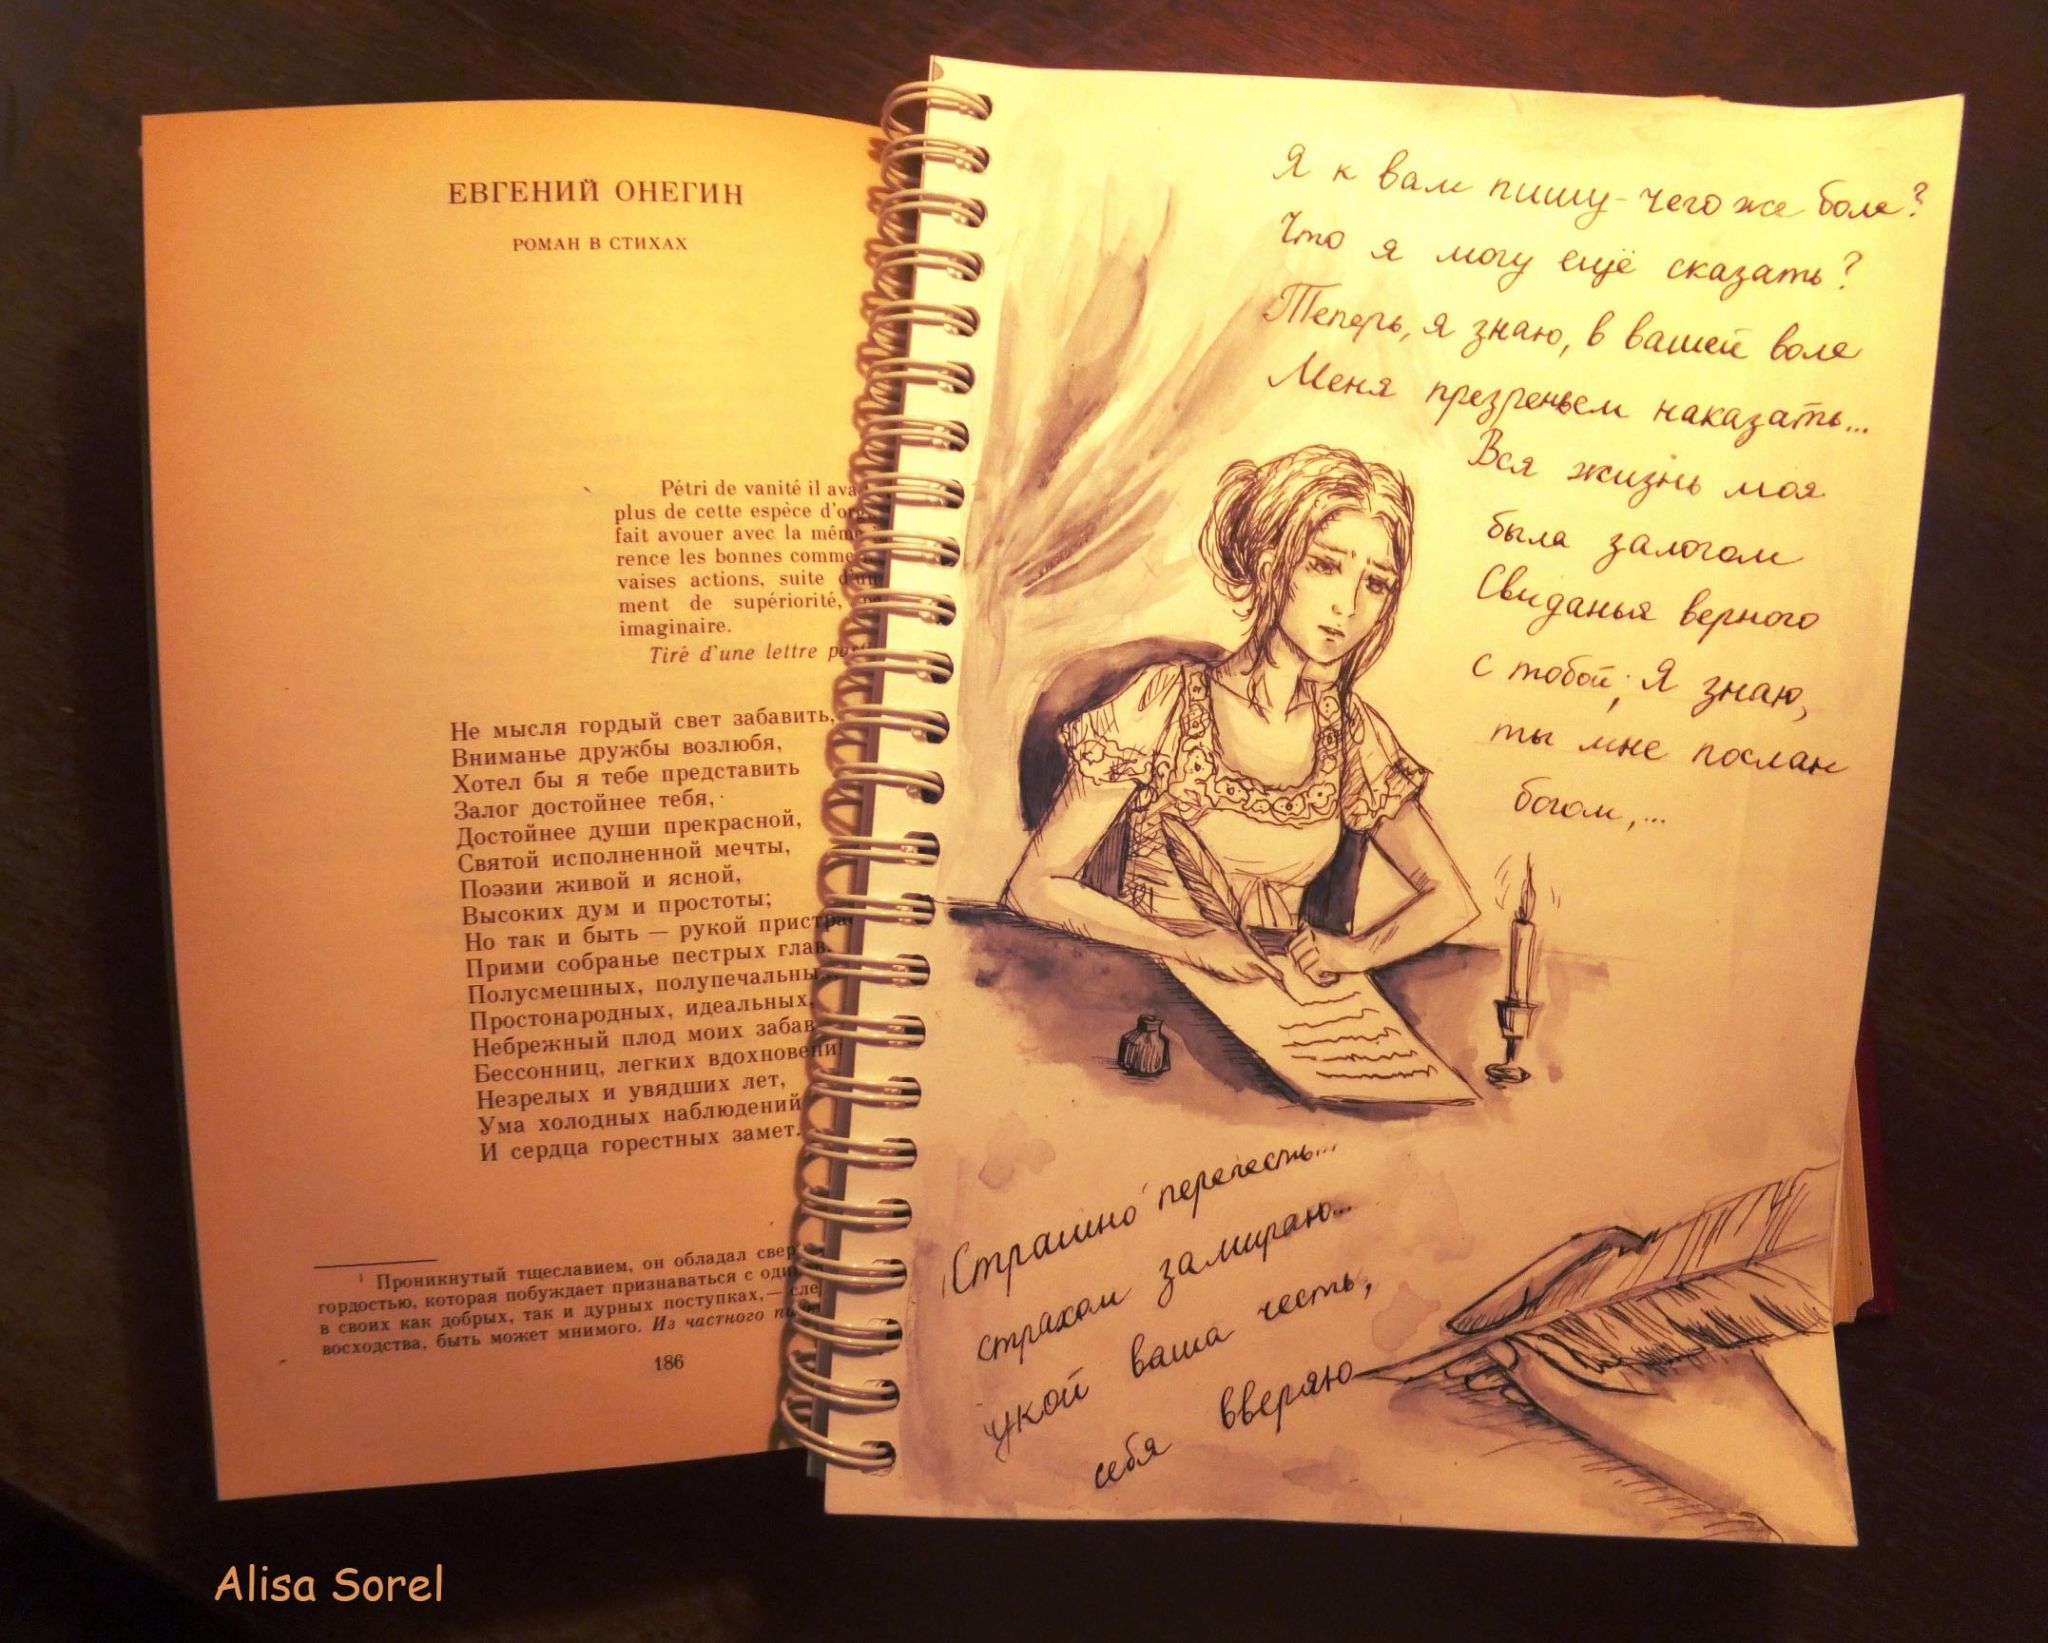 ЕВГЕНИЙ ОНЕГИН
РОМАН В СТИХАХ
Pétri de vanité il ava
plus de cette espèce d'org
fait avouer avec la mêm
rence les bonnes comme
vaises actions, suite d'un
ment de supériorité,
imaginaire.
Tiré d'une lettre part
Не мысля гордый свет забавить,
Вниманье дружбы возлюбя,
Хотел бы я тебе представить
Залог достойнее тебя,
Достойнее души прекрасной,
Святой исполненной мечты,
Поэзии живой и ясной,
Высоких дум и простоты;
Но так и быть — рукой пристрас
Прими собранье пестрых глав,
Полусмешных, полупечальны
Простонародных, идеальных,
Небрежный плод моих забав
Бессонниц, легких вдохновений
Незрелых и увядших лет,
Ума холодных наблюдений
И сердца горестных замет.
1 Проникнутый тщеславием, он обладал свер
гордостью, которая побуждает признаваться с оди
в своих как добрых, так и дурных поступках,— сле
восходства, быть может мнимого. Из частного пи
186
Я к вам пишу - чего же боле?
Что я могу ещё сказать?
Теперь, я знаю, в вашей воле
Меня презреньем наказать...
Вся жизнь моя
была залогом
Свиданья верного
с тобой; Я знаю,
ты мне послан
богом,...
Страшно перечесть...
страхом замираю...
укой ваша честь,
себя вверяю
Alisa Sorel